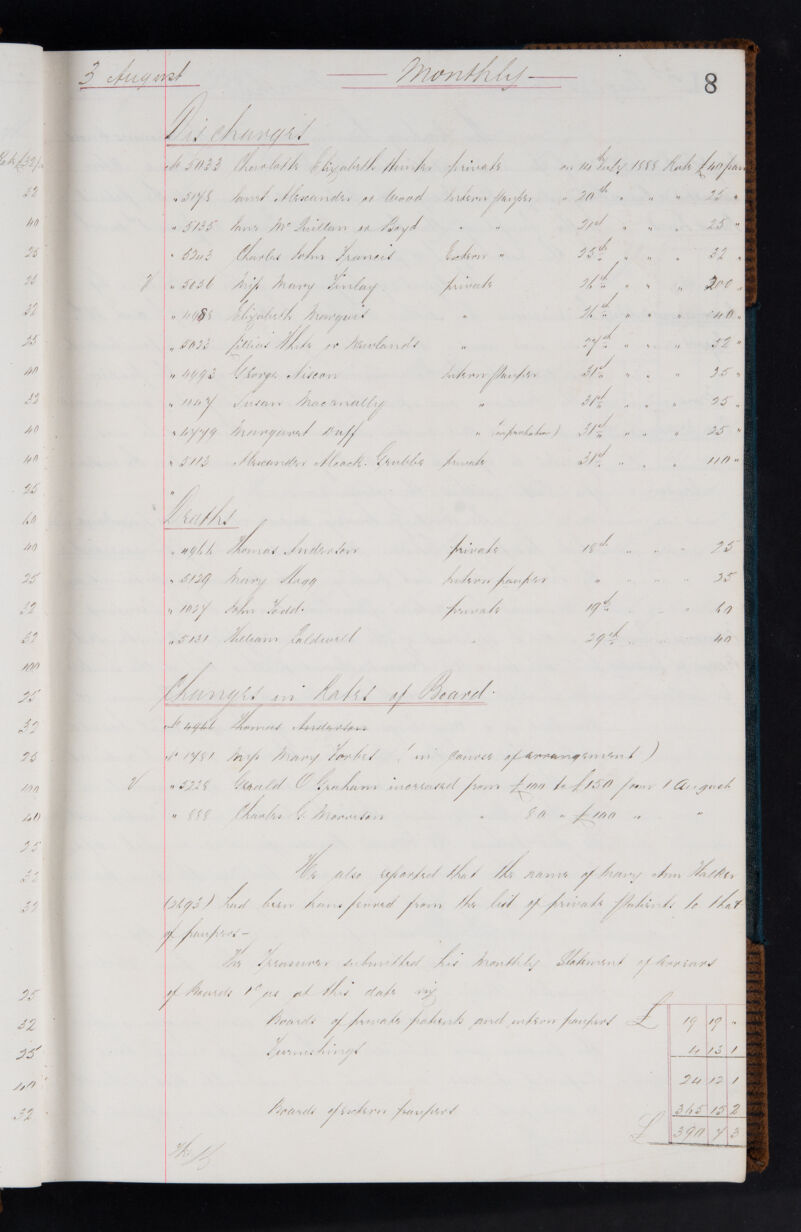 3 August Monthly 8
Discharges
No 5033 Charlotte Elizabeth private on 14th July 1888 Rate £40 p ann
" 5178 Janet Alexander or Wood Intern pauper " 20th " " " 25 "
" 5135 Jane Mc or Boyd " " 21st " " " 25 "
" 5203 Charles John Francis Extern " 25th " " " 32 "
" 5036 Miss Mary Finlay private 26th " " " 200 "
" 4988 Elizabeth Marquis " 26th " " " 40 "
" 5022 White or Newlands " 27th " " " 32 "
" 4993 George Intern pauper 31st " " " 25 "
" Susan Macanally " 31st " " " 25 "
" 4779 Margaret Duff " (on probation) 31st " " " 25 "
" 5113 Alexander Alcock Grubbe private 31st " " " 110 "
"
Deaths
" 4966 Thomas Anderson private 18th " " " 25
" 5129 Mary Intern pauper " " " " 25
" 1027 John Todd private 19th " " " 60
" 5131 William Caldwell " 29th " " " 40
Changes in Rates of Board.
No 4966 Thomas Anderson
No 1781 Miss Mary Forbes (in course of arrangement)
" 5228 Gerald O Graham increased from £100 to £150 from 1 August
" 888 Charles G. Morrison " 80 " £100 " "
He also reported that the name of Mary Ann Walker
(2893) had been transferred from the list of private patients to that
of paupers -
The Treasurer submitted his Monthly Statement of Arrears
of Boards &c as at this date viz
Boards of private patients and intern paupers £ 19 19 "
Furnishings 4 13 1
24 12 1
Boards of extern paupers 365 15 2
£ 390 7 3